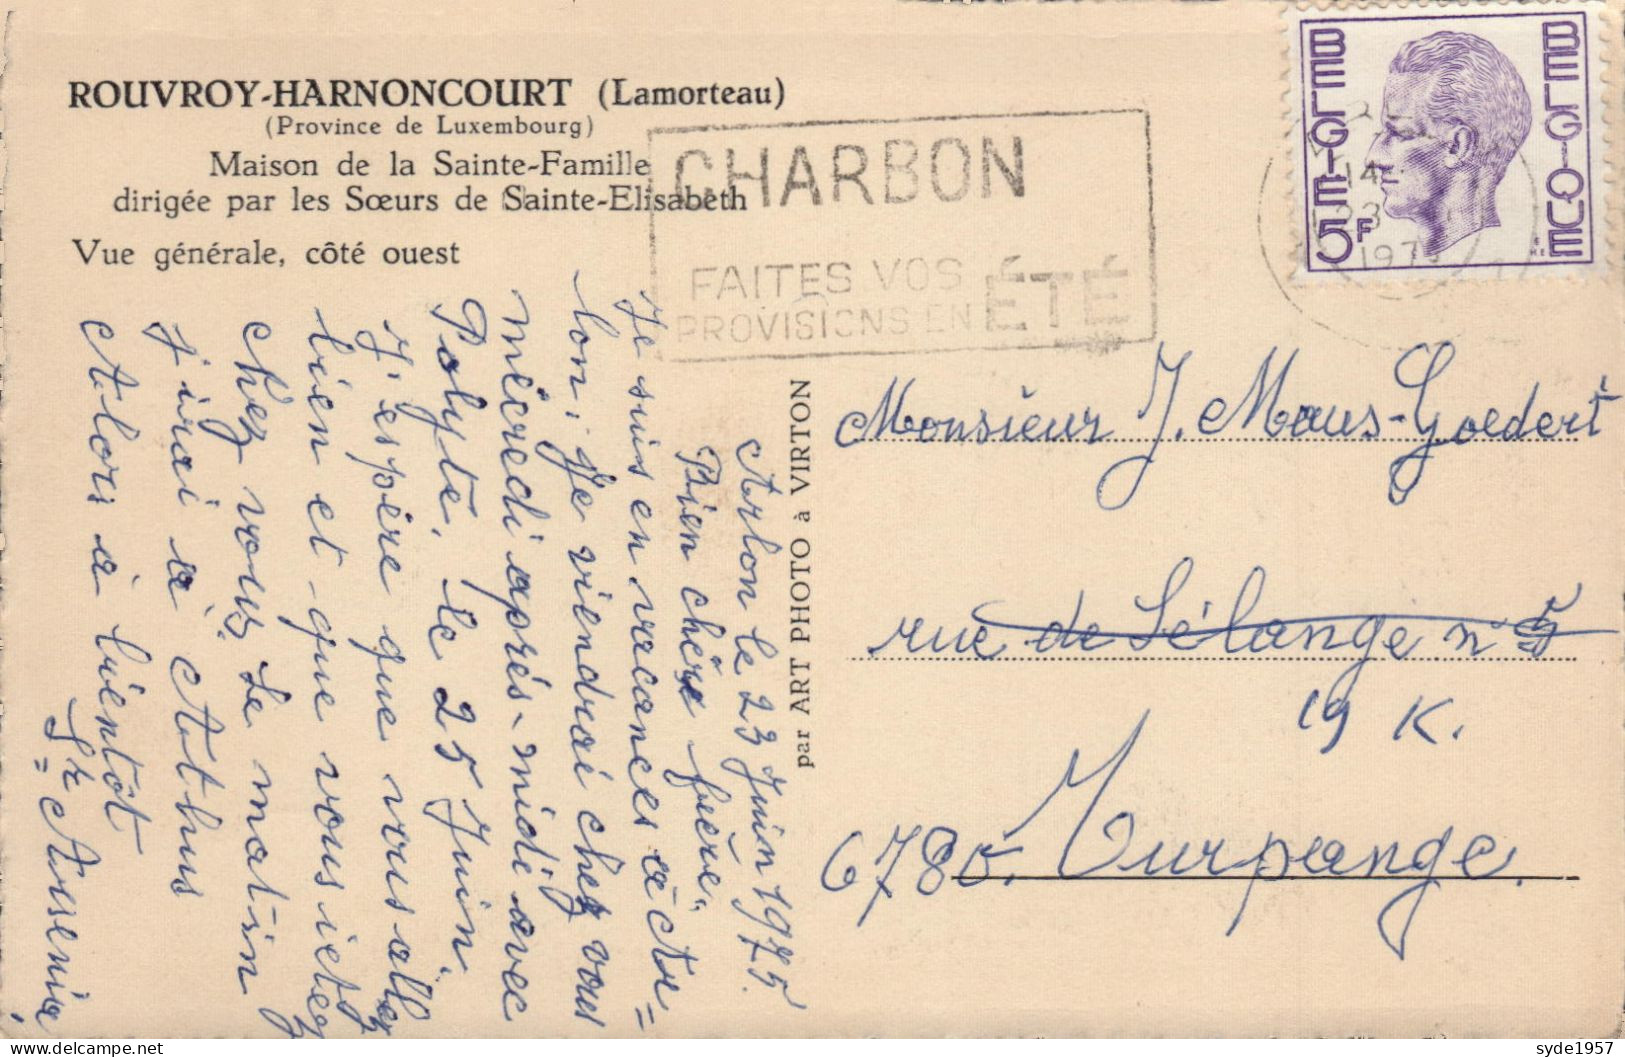 ROUVROY-HARNONCOURT (Lamorteau)
(Province de Luxembourg)
Maison de la Sainte-Famille
dirigée par les Sœurs de Sainte-Elisabeth
Vue générale, côté ouest
CHARBON
FAITES VOS
PROVISIONS EN ÉTÉ
BELGIE 5F
BELGIQUE
14
23
197
par ART PHOTO à VIRTON
Arlon le 23 Juin 1975.
Bien chère frère,
Je suis en vacances à Ar=
lon; Je viendrai chez vous
mercredi après-midi avec
Polyte, le 25 Juin.
J'espère que vous allez
bien et que vous ietez
chez vous. Le matin
J'irai à Athus
Alors à bientôt
Sr
Monsieur J. Maus-Goedert
rue de Sélange n° 5
19 K.
6780. Turpange.
syde1957